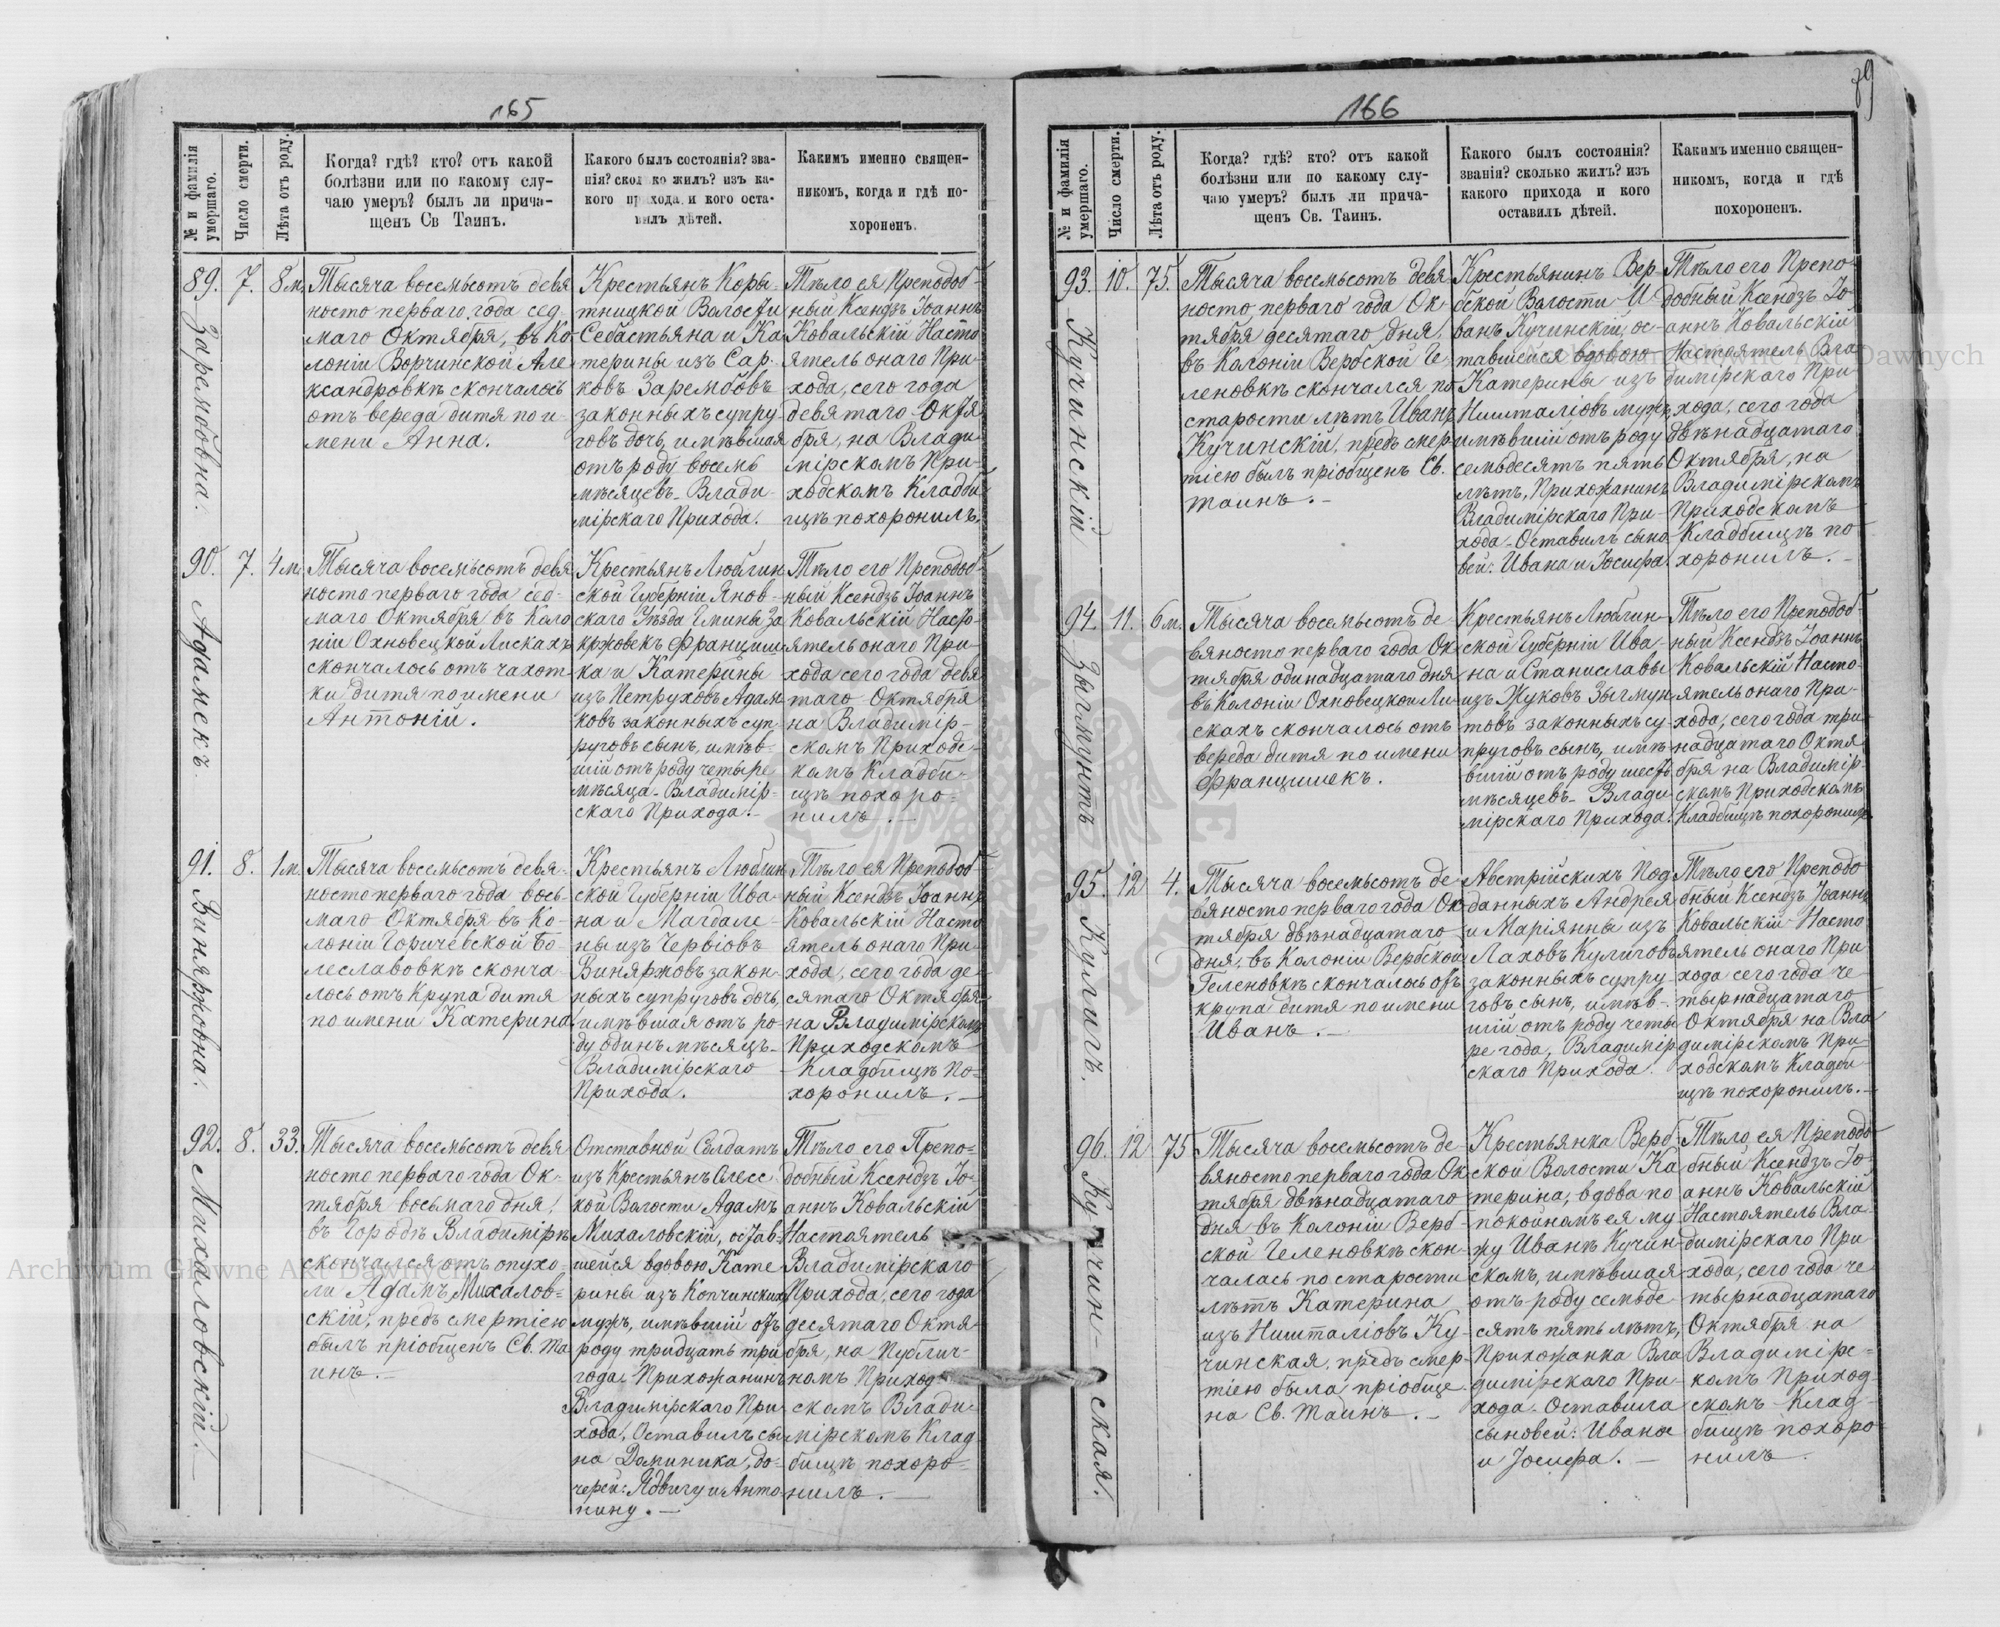 165
№ и фамилія умершаго.
Число смерти.
Лѣта отъ роду.
Когда? гдѣ? кто? отъ какой
болѣзни или по какому слу-
чаю умеръ? былъ ли прича-
щенъ Св Таинъ.
Какого былъ состоянія? зва-
нія? сколько жилъ? изъ ка-
кого прихода и кого оста-
вилъ дѣтей.
Какимъ именно священ-
никомъ, когда и гдѣ по-
хороненъ.
89. Зарембовна.
7.
8 м.
Тысяча восемьсотъ девя
носто перваго года сед-
маго Октября, въ Ко-
лоніи Ворчинской Але
ксандровкѣ скончалось
отъ вереда дитя по и-
мени Анна.
Крестьянъ Коры-
тницкой Волости
Себастьяна и Ка-
терины изъ Сар-
ковъ Зарембовъ
законныхъ супру-
говъ дочь, имѣвшая
отъ роду восемь
мѣсяцевъ - Влади-
мірскаго Прихода.
Тѣло ея Преподоб-
ный Ксендзъ Іоаннъ
Ковальскій Насто
ятель онаго При-
хода, сего года
девятаго Октя
бря, на Влади-
мірскомъ При-
ходскомъ Кладби
щѣ похоронилъ.
90. Адамекъ.
7.
4 м.
Тысяча восемьсотъ девя
носто перваго года сед-
маго Октября въ Коло
ніи Охновецкой Лискахъ
скончалось отъ чахот-
ки дитя по имени
Антоній.
Крестьянъ Люблин
ской Губерніи Янов-
скаго Уѣзда Гмины За
кржовкъ Францыш
ка и Катерины
изъ Петруховъ Адам
ковъ законныхъ суп-
руговъ сынъ, имѣв-
шій отъ роду четыре
мѣсяца - Владимір-
скаго Прихода. -
Тѣло его Преподоб-
ный Ксендзъ Іоаннъ
Ковальскій Насто-
ятель онаго При-
хода сего года девя
таго Октября
на Владимір-
скомъ Приходс-
комъ Кладби-
щѣ похоро-
нилъ. -
91. Виняржовна.
8.
1 м.
Тысяча восемьсотъ девя-
носто перваго года вось-
маго Октября въ Ко-
лоніи Горичевской Бо-
леславовкѣ сконча-
лось отъ Крупа дитя
по имени Катерина.
Крестьянъ Люблин
ской Губерніи Ива-
на и Магдале-
ны изъ Червіовъ
Виняржовъ закон-
ныхъ супруговъ дочь,
имѣвшая отъ ро-
ду одинъ мѣсяцъ -
Владимірскаго
Прихода.
Тѣло ея Преподоб
ный Ксендзъ Іоаннъ
Ковальскій Насто
ятель онаго При-
хода, сего года де-
сятаго Октября
на Владимірскомъ
Приходскомъ
Кладбищѣ По-
хоронилъ. -
92. Михаловскій. -
8.
33.
Тысяча восемьсотъ девя
носто перваго года Ок-
тября восьмаго дня,
въ Городѣ Владимірѣ
скончался отъ опухо-
ли Адамъ Михалов-
скій, предъ смертію
былъ пріобщенъ Св. Та
инъ. -
Отставной Солдатъ
изъ Крестьянъ Олесс-
кой Волости Адамъ
Михаловскій, остав-
шейся вдовою Кате
рины изъ Копчинскихъ
мужъ, имѣвшій отъ
роду тридцать три
года. Прихожанинъ
Владимірскаго При-
хода, Оставилъ сы
на Доминика, до-
черей: Ядвигу и Анто
нину. -
Тѣло его Препо-
добный Ксендзъ Іо-
аннъ Ковальскій
Настоятель
Владимірскаго
Прихода, сего года
десятаго Октя-
бря, на Публич-
номъ Приход-
скомъ Влади-
мірскомъ Клад-
бищѣ похоро-
нилъ. -
166
89
№ и фамилія умершаго.
Число смерти.
Лѣта отъ роду.
Когда? гдѣ? кто? отъ какой
болѣзни или по какому слу-
чаю умеръ? былъ ли прича-
щенъ Св. Таинъ.
Какого былъ состоянія?
званія? сколько жилъ? изъ
какого прихода и кого
оставилъ дѣтей.
Какимъ именно священ-
никомъ, когда и гдѣ
похороненъ.
93. Кучинскій
10.
75.
Тысяча восемьсотъ девя
носто перваго года Ок-
тября десятаго дня,
въ Колоніи Вербской Ге-
леновкѣ скончался по
старости лѣтъ Иванъ
Кучинскій, предъ смер
тію былъ пріобщенъ Св.
таинъ. -
Крестьянинъ Вер-
бской Волости И-
ванъ Кучинскій, ос-
тавшейся вдовою
Катерины изъ
Ништаліовъ мужъ,
имѣвшій отъ роду
семьдесятъ пять
лѣтъ, Прихожанинъ
Владимірскаго При-
хода - Оставилъ сыно
вей: Ивана и Іосифа.
Тѣло его Препо-
добный Ксендзъ Іо-
аннъ Ковальскій
Настоятель Вла-
димірскаго При-
хода, сего года
двѣнадцатаго
Октября, на
Владимірскомъ
Приходскомъ
Кладбищѣ по
хоронилъ. -
94. Зыгмунтъ
11.
6 м.
Тысяча восемьсотъ де-
вяносто перваго года Ок
тября одинадцатаго дня
въ Колоніи Охновецкой Ли-
скахъ скончалось отъ
вереда дитя по имени
Францишекъ.
Крестьянъ Люблин-
ской Губерніи Ива-
на и Станиславы
изъ Жуковъ Зыгмун
товъ законныхъ су-
пруговъ сынъ, имѣ
вшій отъ роду шесть
мѣсяцевъ - Влади
мірскаго Прихода.
Тѣло его Преподоб-
ный Ксендзъ Іоаннъ
Ковальскій Насто-
ятель онаго При-
хода, сего года три-
надцатаго Октя
бря на Владимір-
скомъ Приходскомъ
Кладбищѣ похоронилъ.
95. Кулигъ.
12
4.
Тысяча восемьсотъ де
вяносто перваго года Ок
тября двѣнадцатаго
дня, въ Колоніи Вербской
Геленовкѣ скончалось отъ
крупа дитя по имени
Иванъ. -
Австрійскихъ Под
данныхъ Андрея
и Маріянны изъ
Лаховъ Кулиговъ
законныхъ супру
говъ сынъ, имѣв-
шій отъ роду четы
ре года, Владимір
скаго Прихода.
Тѣло его Преподо
бный Ксендзъ Іоаннъ
Ковальскій Насто
ятель онаго При
хода сего года че
тырнадцатаго
Октября на Вла
димірскомъ При-
ходскомъ Кладби
щѣ похоронилъ. -
96. Кучин-ская.
12
75
Тысяча восемьсотъ де-
вяносто перваго года Ок
тября двѣнадцатаго
дня въ Колоніи Верб-
ской Геленовкѣ скон-
чалась по старости
лѣтъ Катерина
изъ Ништаліовъ Ку-
чинская, предъ смер-
тію была пріобще-
на Св. Таинъ. -
Крестьянка Верб-
ской Волости Ка
терина, вдова по
покойномъ ея му-
жу Иванѣ Кучин-
скомъ, имѣвшая
отъ роду семьде
сятъ пять лѣтъ,
Прихожанка Вла
димірскаго При-
хода - Оставила
сыновей: Ивана
и Іосифа. -
Тѣло ея Преподо
бный Ксендзъ Іо-
аннъ Ковальскій
Настоятель Вла
димірскаго При
хода, сего года че
тырнадцатаго
Октября на
Владимірс-
комъ Приход-
скомъ Клад-
бищѣ похоро-
нилъ.
Archiwum Główne Akt Dawnych
Archiwum Główne Akt Dawnych